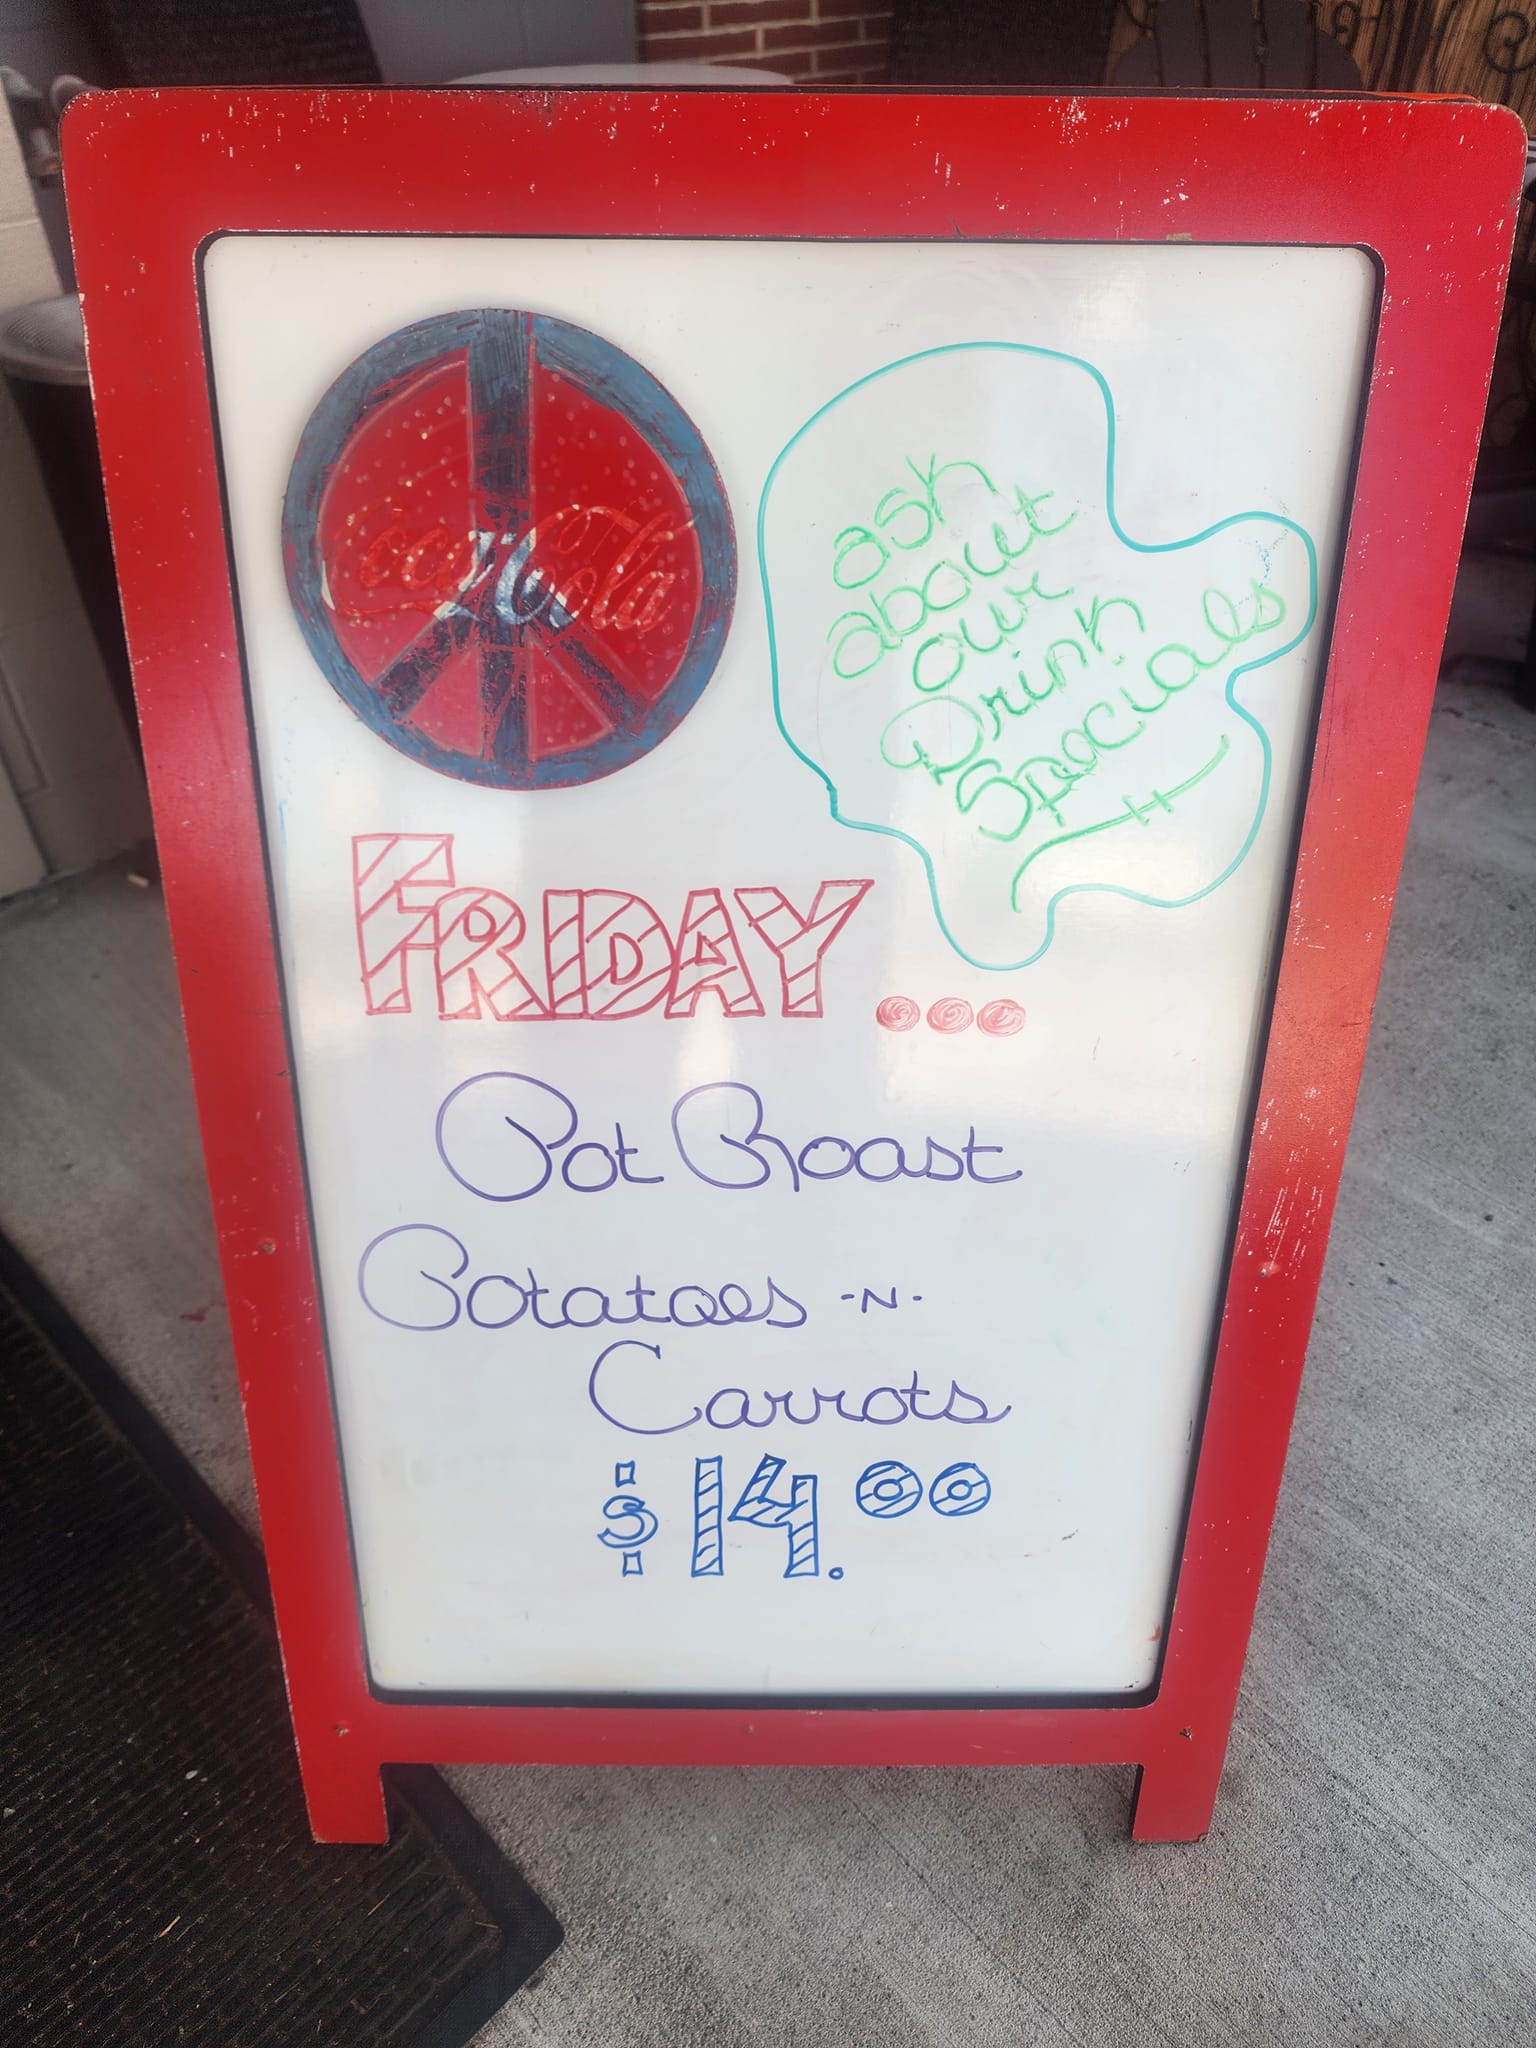 Coca-Cola
ask
about
our
Drink
Specials
FRIDAY...
Pot Roast
Potatoes -N-
Carrots
$14.00